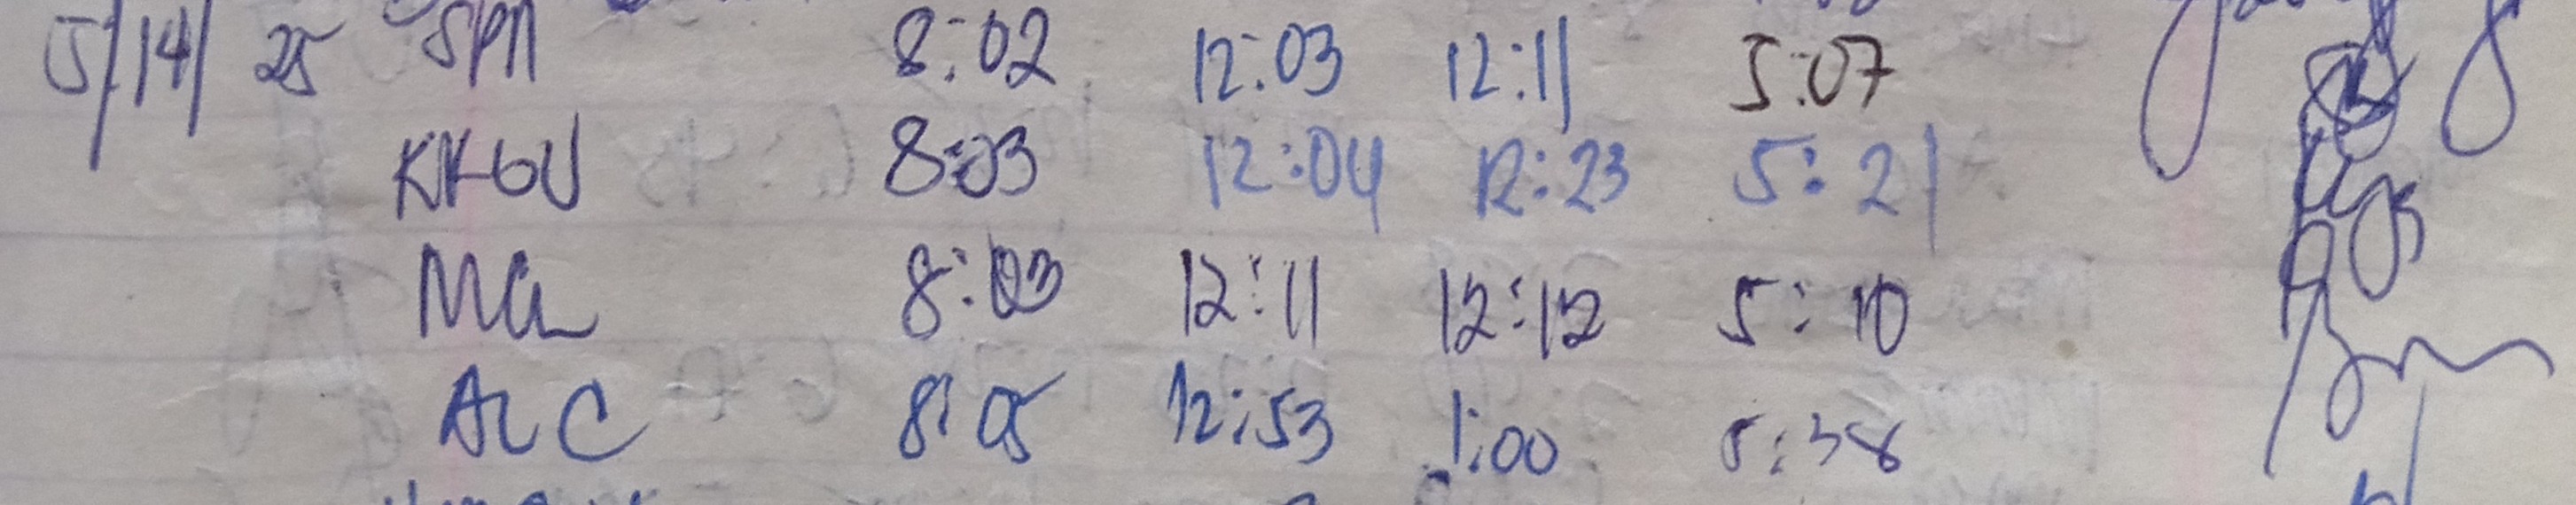 5/14/25 SPM 8:02 12:03 12:11 5:07
KKGU 8:03 12:04 12:23 5:21
MCL 8:03 12:11 12:12 5:10
ALC 8:05 12:53 1:00 5:38